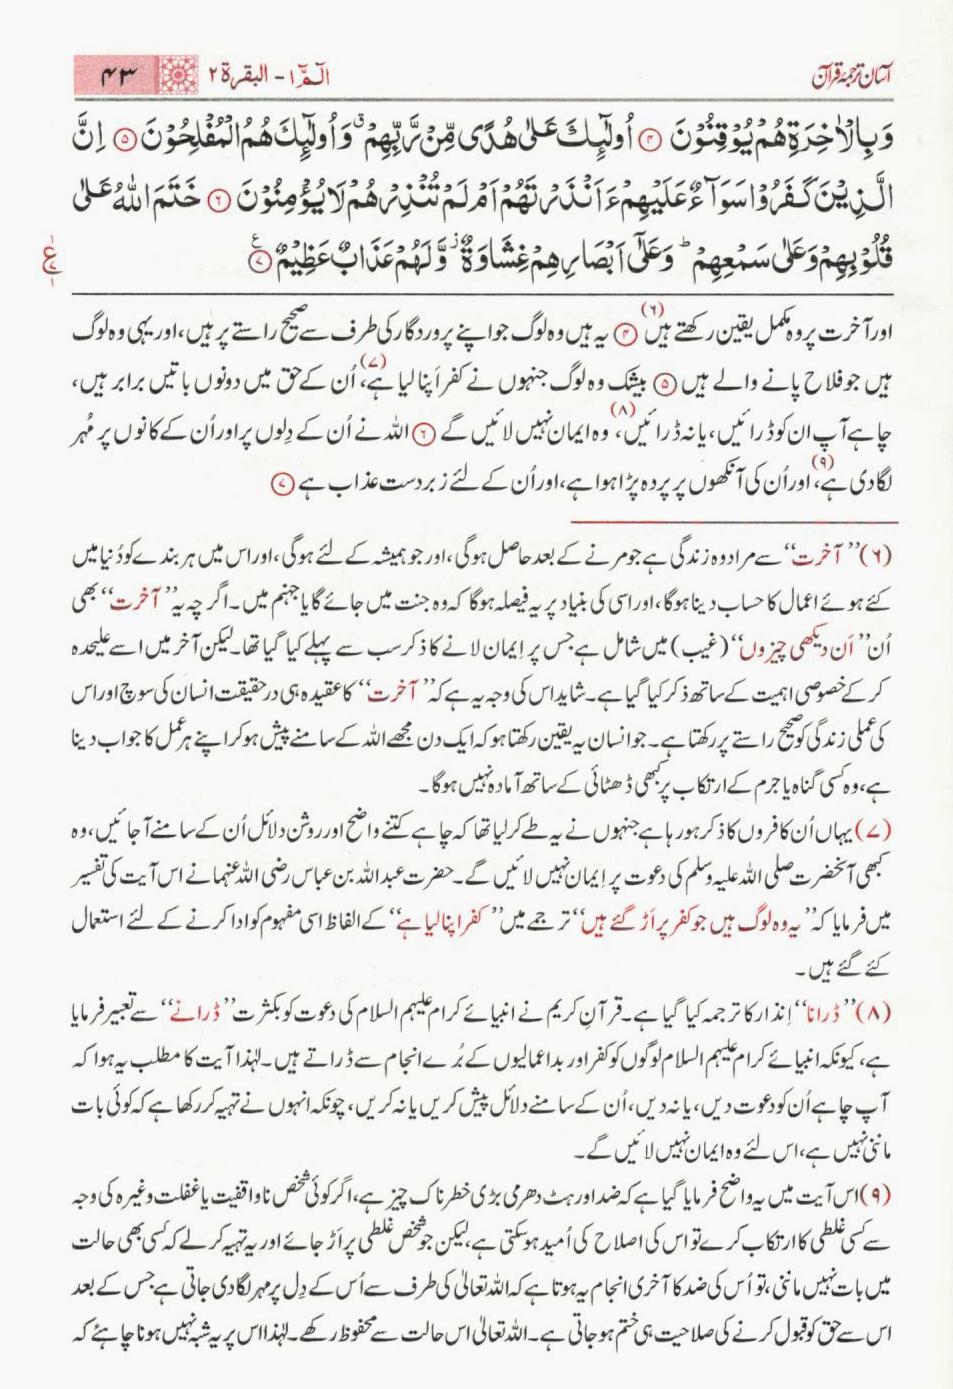 آسان ترجمۂ قرآن الٓـمّٓ ۱ - البقرة ۲ ۴۳
وَبِالْاٰخِرَةِ هُمْ يُوْقِنُوْنَ ۴ اُولٰٓئِكَ عَلٰى هُدًى مِّنْ رَّبِّهِمْ ۗ وَاُولٰٓئِكَ هُمُ الْمُفْلِحُوْنَ ۵ اِنَّ
الَّذِيْنَ كَفَرُوْا سَوَآءٌ عَلَيْهِمْ ءَاَنْذَرْتَهُمْ اَمْ لَمْ تُنْذِرْهُمْ لَا يُؤْمِنُوْنَ ۶ خَتَمَ اللّٰهُ عَلٰى
قُلُوْبِهِمْ وَعَلٰى سَمْعِهِمْ ؕ وَعَلٰٓى اَبْصَارِهِمْ غِشَاوَةٌ ۫ وَّلَهُمْ عَذَابٌ عَظِيْمٌ ۷
اور آخرت پر وہ مکمل یقین رکھتے ہیں (۶) ۴ یہ ہیں وہ لوگ جو اپنے پروردگار کی طرف سے صحیح راستے پر ہیں، اور یہی وہ لوگ
ہیں جو فلاح پانے والے ہیں ۵ بیشک وہ لوگ جنہوں نے کفر اَپنا لیا ہے، (۷) اُن کے حق میں دونوں باتیں برابر ہیں،
چاہے آپ ان کو ڈرائیں، یا نہ ڈرائیں، (۸) وہ ایمان نہیں لائیں گے ۶ اللہ نے اُن کے دِلوں پر اور اُن کے کانوں پر مُہر
لگادی ہے، (۹) اور اُن کی آنکھوں پر پردہ پڑا ہوا ہے، اور اُن کے لئے زبردست عذاب ہے ۷
(۶) ’’آخرت‘‘ سے مراد وہ زندگی ہے جو مرنے کے بعد حاصل ہوگی، اور جو ہمیشہ کے لئے ہوگی، اور اس میں ہر بندے کو دُنیا میں
کئے ہوئے اعمال کا حساب دینا ہوگا، اور اسی کی بنیاد پر یہ فیصلہ ہوگا کہ وہ جنت میں جائے گا یا جہنم میں۔ اگرچہ یہ ’’آخرت‘‘ بھی
اُن ’’اَن دیکھی چیزوں‘‘ (غیب) میں شامل ہے جس پر اِیمان لانے کا ذکر سب سے پہلے کیا گیا تھا۔ لیکن آخر میں اسے علیحدہ
کرکے خصوصی اہمیت کے ساتھ ذکر کیا گیا ہے۔ شاید اس کی وجہ یہ ہے کہ ’’آخرت‘‘ کا عقیدہ ہی درحقیقت انسان کی سوچ اور اس
کی عملی زندگی کو صحیح راستے پر رکھتا ہے۔ جو انسان یہ یقین رکھتا ہو کہ ایک دن مجھے اللہ کے سامنے پیش ہو کر اپنے ہر عمل کا جواب دینا
ہے، وہ کسی گناہ یا جرم کے ارتکاب پر کبھی ڈھٹائی کے ساتھ آمادہ نہیں ہوگا۔
(۷) یہاں اُن کافروں کا ذکر ہو رہا ہے جنہوں نے یہ طے کر لیا تھا کہ چاہے کتنے واضح اور روشن دلائل اُن کے سامنے آجائیں، وہ
کبھی آنحضرت صلی اللہ علیہ وسلم کی دعوت پر اِیمان نہیں لائیں گے۔ حضرت عبداللہ بن عباس رضی اللہ عنہما نے اس آیت کی تفسیر
میں فرمایا کہ ’’یہ وہ لوگ ہیں جو کفر پر اَڑ گئے ہیں‘‘ ترجمے میں ’’کفر اپنا لیا ہے‘‘ کے الفاظ اسی مفہوم کو ادا کرنے کے لئے استعمال
کئے گئے ہیں۔
(۸) ’’ڈرانا‘‘ اِنذار کا ترجمہ کیا گیا ہے۔ قرآنِ کریم نے انبیائے کرام علیہم السلام کی دعوت کو بکثرت ’’ڈرانے‘‘ سے تعبیر فرمایا
ہے، کیونکہ انبیائے کرام علیہم السلام لوگوں کو کفر اور بداعمالیوں کے بُرے انجام سے ڈراتے ہیں۔ لہٰذا آیت کا مطلب یہ ہوا کہ
آپ چاہے اُن کو دعوت دیں، یا نہ دیں، اُن کے سامنے دلائل پیش کریں یا نہ کریں، چونکہ انہوں نے تہیہ کر رکھا ہے کہ کوئی بات
ماننی نہیں ہے، اس لئے وہ ایمان نہیں لائیں گے۔
(۹) اس آیت میں یہ واضح فرمایا گیا ہے کہ ضد اور ہٹ دھرمی بڑی خطرناک چیز ہے، اگر کوئی شخص ناواقفیت یا غفلت وغیرہ کی وجہ
سے کسی غلطی کا ارتکاب کرے تو اس کی اصلاح کی اُمید ہو سکتی ہے، لیکن جو شخص غلطی پر اَڑ جائے اور یہ تہیہ کر لے کہ کسی بھی حالت
میں بات نہیں ماننی، تو اُس کی ضد کا آخری انجام یہ ہوتا ہے کہ اللہ تعالیٰ کی طرف سے اُس کے دِل پر مہر لگادی جاتی ہے جس کے بعد
اس سے حق کو قبول کرنے کی صلاحیت ہی ختم ہو جاتی ہے۔ اللہ تعالیٰ اس حالت سے محفوظ رکھے۔ لہٰذا اس پر یہ شبہ نہیں ہونا چاہئے کہ